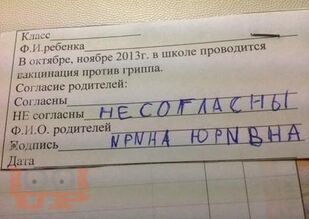 Класс
Ф.И.ребенка
В октябре, ноябре 2013г. в школе проводится
вакцинация против гриппа.
Согласие родителей:
Согласны
НЕ согласны НЕСОГЛАСНЫ
Ф.И.О. родителей
Подпись ИРИНА ЮРИВНА
Дата